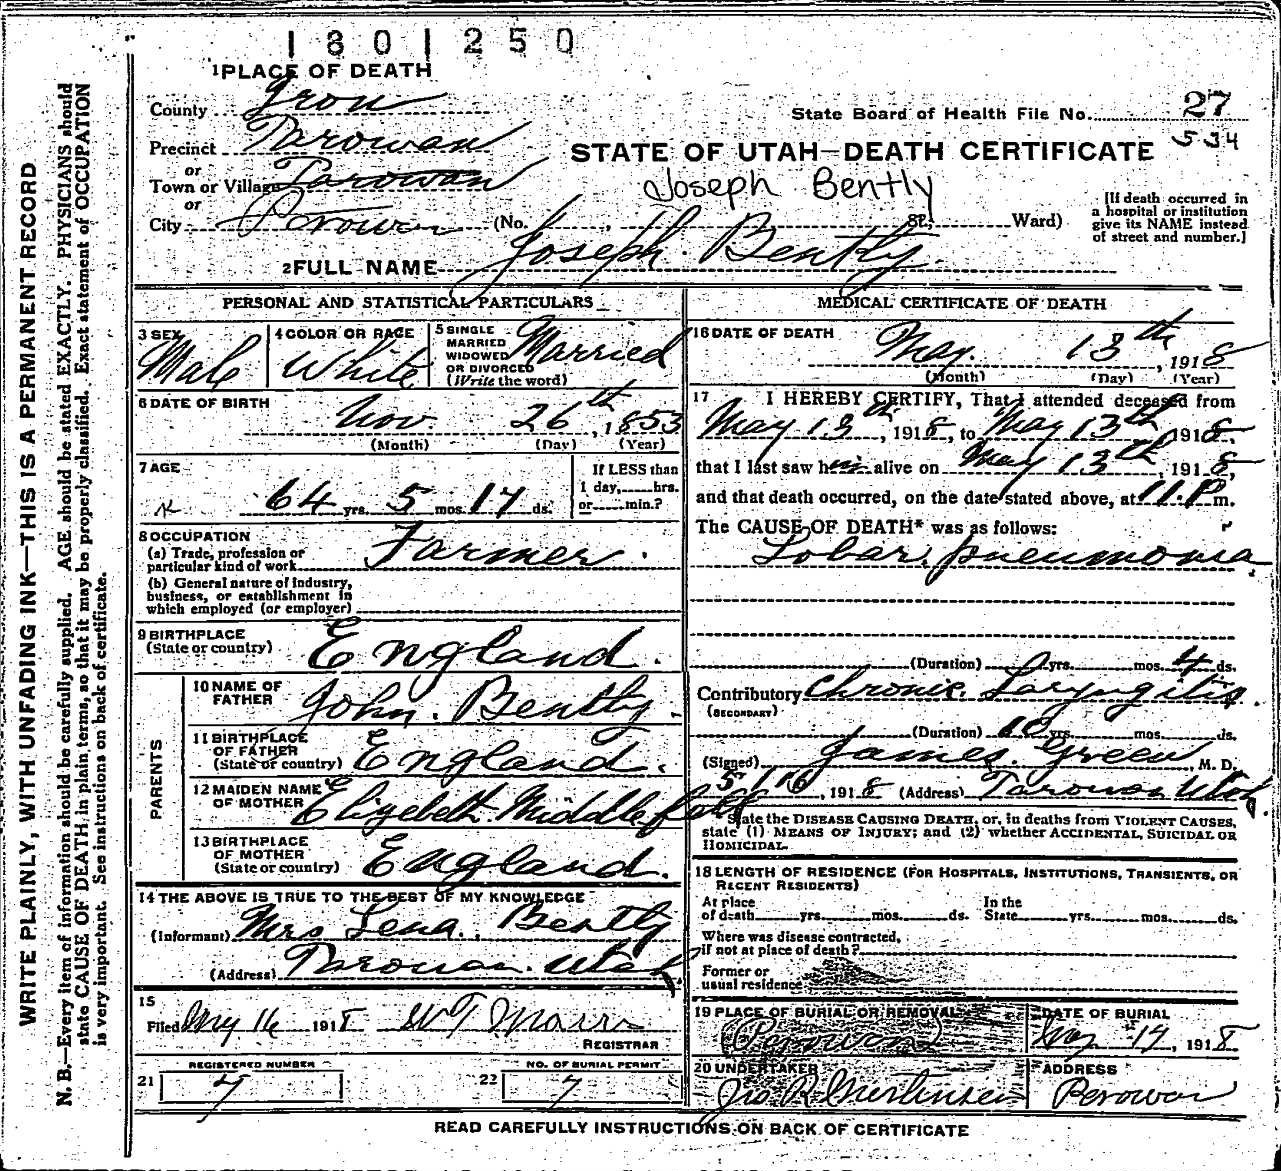 1801250
1 PLACE OF DEATH
County Iron
State Board of Health File No. 27
534
Precinct Parowan
STATE OF UTAH—DEATH CERTIFICATE
or
Town or Village Parowan
Joseph Bently
or
City Parowan (No. , St., Ward)
[If death occurred in
a hospital or institution
give its NAME instead
of street and number.]
2 FULL NAME Joseph Bently.
PERSONAL AND STATISTICAL PARTICULARS
3 SEX Male
4 COLOR OR RACE White
5 SINGLE
MARRIED
WIDOWED
OR DIVORCED
(Write the word) Married
6 DATE OF BIRTH
Nov 26th, 1853
(Month) (Day) (Year)
7 AGE
64 yrs. 5 mos. 17 ds.
If LESS than
1 day, hrs.
or min.?
8 OCCUPATION
(a) Trade, profession or
particular kind of work Farmer.
(b) General nature of industry,
business, or establishment in
which employed (or employer)
9 BIRTHPLACE
(State or country) England.
PARENTS
10 NAME OF
FATHER John. Bently.
11 BIRTHPLACE
OF FATHER
(State or country) England.
12 MAIDEN NAME
OF MOTHER Elizebeth Middlefall
13 BIRTHPLACE
OF MOTHER
(State or country) England.
14 THE ABOVE IS TRUE TO THE BEST OF MY KNOWLEDGE
(Informant) Mrs Lena. Bently
(Address) Parowan. Utah
15
Filed May 16 1918
REGISTRAR
REGISTERED NUMBER
21 7
NO. OF BURIAL PERMIT
22 7
MEDICAL CERTIFICATE OF DEATH
16 DATE OF DEATH
May. 13th, 1918
(Month) (Day) (Year)
17 I HEREBY CERTIFY, That I attended deceased from
May 13th, 1918, to May 13th 1918.
that I last saw him alive on May 13th, 1918,
and that death occurred, on the date stated above, at 11.P m.
The CAUSE OF DEATH* was as follows:
Lobar. pneumonia
(Duration) 0 yrs. mos. 4 ds.
Contributory Chronic. Laryngitis.
(SECONDARY)
(Duration) 10 yrs. mos. ds.
(Signed) James. Green, M. D.
5/16, 1918 (Address) Parowan Utah.
*State the DISEASE CAUSING DEATH, or, in deaths from VIOLENT CAUSES,
state (1) MEANS OF INJURY; and (2) whether ACCIDENTAL, SUICIDAL OR
HOMICIDAL.
18 LENGTH OF RESIDENCE (FOR HOSPITALS, INSTITUTIONS, TRANSIENTS, OR
RECENT RESIDENTS)
At place
of death yrs. mos. ds.
In the
State yrs. mos. ds.
Where was disease contracted,
if not at place of death?
Former or
usual residence
19 PLACE OF BURIAL OR REMOVAL
Parowan
DATE OF BURIAL
May 14, 1918
20 UNDERTAKER
ADDRESS
Parowan
READ CAREFULLY INSTRUCTIONS ON BACK OF CERTIFICATE
WRITE PLAINLY, WITH UNFADING INK—THIS IS A PERMANENT RECORD
N. B.—Every item of information should be carefully supplied. AGE should be stated EXACTLY. PHYSICIANS should
state CAUSE OF DEATH in plain terms, so that it may be properly classified. Exact statement of OCCUPATION
is very important. See instructions on back of certificate.